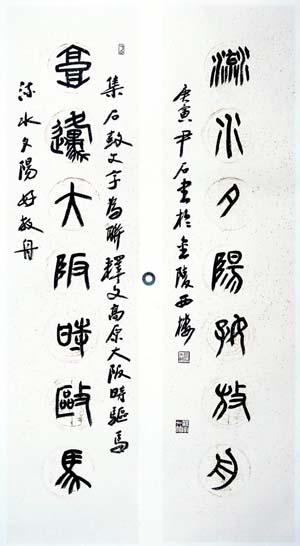 流水夕陽好放舟
庚寅尹石書於金陵西樓
集石鼓文字為聯釋文高原大阪時驅馬
高邍大阪時毆馬
流水夕陽好放舟